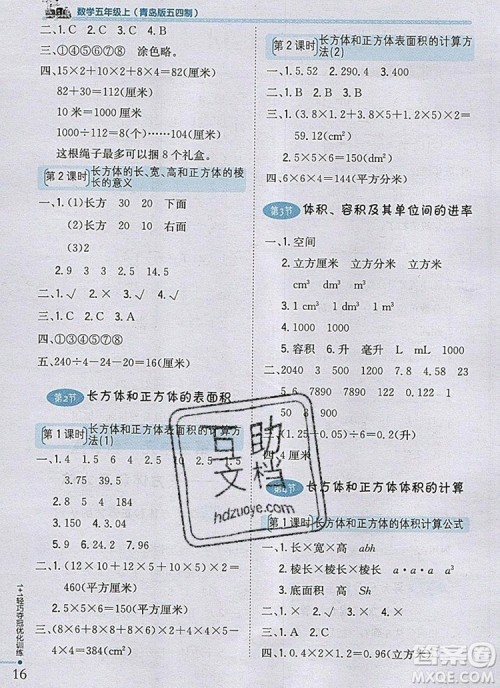 数学五年级上(青岛版五四制)
二、1.C 2.C
三、①③④⑥⑦ 涂色略。
四、15×2+10×2+8×4=82(厘米)
82+30=112(厘米)
10米=1000厘米
1000÷112≈8(个)
这根绳子最多可以捆8个礼盒。
第2课时 长方体的长、宽、高和正方体的棱长的意义
一、1.(1)长方 30 20 下面
(2)长方 20 10 右面
(3)2
2.9 3 12 4.54
二、1.√ 2.√
三、1.C 2.C 3.A
四、①④⑥⑦⑧
五、240÷4-24-20=16(厘米)
第2节 长方体和正方体的表面积
第1课时 长方体和正方体表面积的计算方法(1)
一、1.4 1.2 1.5 2.25 10
3.75 4.35 39.5
5.150 6.24
二、1.(12×10+12×5+10×5)×2=
460(平方厘米)
2.20×20×6=2400(平方厘米)
三、(8×6+8×8+6×8)×2+8×4+8×
4=384(cm²)
1+1轻巧夺冠优化训练
16
第2课时 长方体和正方体表面积的计算方法(2)
一、1.5.52 2.290.4 3.320
二、1.C 2.B 3.A
三、1.(3.8×1.2+3.8×5+1.2×5)×2=
59.12(cm²)
2.1.5×1.5×4=9(dm²)
四、6×6×4=144(平方厘米)
第3节 体积、容积及其单位间的进率
一、1.空间
2.立方厘米 立方分米 立方米
3.cm³ dm³ m³
4.1cm³ 1dm³ 1m³
5.容积 6.升 毫升 L mL 1000
二、2040 0.08 3.5 3500 0.46
5 60 7890 7.89 7890 120
0.12 9.8 9800
三、(1.25-0.05)×5=6(升)
四、4厘米
第4节 长方体和正方体体积的计算
第1课时 长方体和正方体的体积计算公式
一、1.长×宽×高 abh
2.棱长×棱长×棱长 a·a·a a³
3.底面积 高 Sh
二、1.× 2.× 3.√
三、1.4×2×1.2×0.1=0.96(立方米)